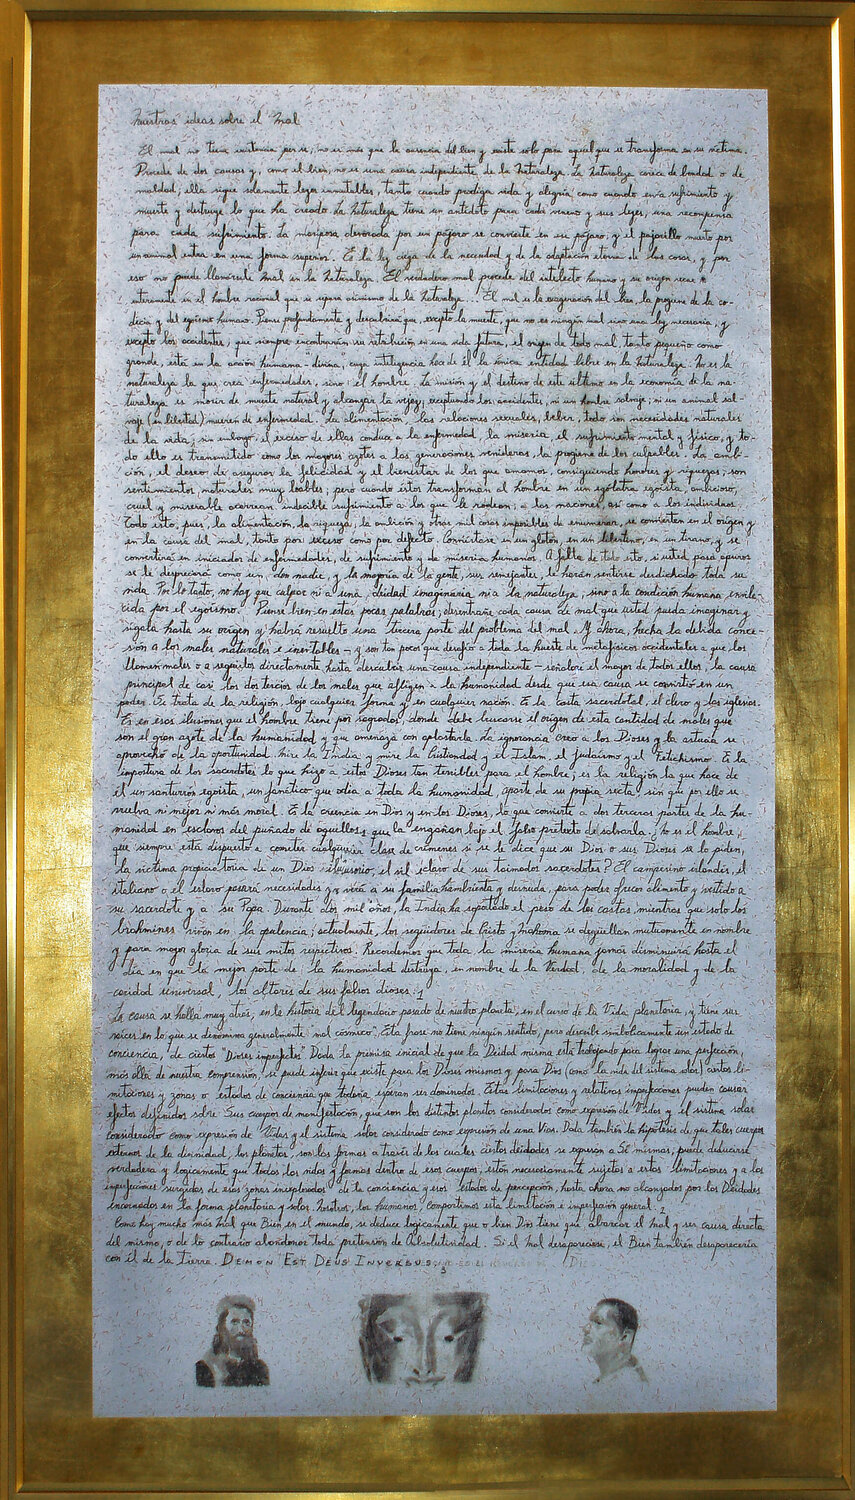 Nuestras ideas sobre el Mal
El mal no tiene existencia per se, no es más que la ausencia del bien y existe solo para aquel que se transforma en su víctima.
Procede de dos causas y, como el bien, no es una causa independiente de la Naturaleza. La Naturaleza carece de bondad o de
maldad, ella sigue solamente leyes inmutables, tanto cuando prodiga vida y alegría como cuando envía sufrimiento y
muerte y destruye lo que ha creado. La Naturaleza tiene un antídoto para cada veneno y sus leyes, una recompensa
para cada sufrimiento. La mariposa devorada por un pájaro se convierte en ese pájaro, y el pajarillo muerto por
un animal entra en una forma superior. Es la ley ciega de la necesidad y de la adaptación eterna de las cosas, y por
eso no puede llamársele Mal en la Naturaleza. El verdadero mal procede del intelecto humano y su origen recae
enteramente en el hombre racional que se separa asimismo de la Naturaleza... El mal es la exageración del bien, la progenie de la co-
dicia y del egoísmo humano. Piense profundamente y descubrirá que, excepto la muerte, que no es ningún mal sino una ley necesaria, y
excepto los accidentes, que siempre encontrarán su retribución en una vida futura, el origen de todo mal, tanto pequeño como
grande, está en la acción humana-divina, cuya inteligencia hace de él la única entidad libre en la Naturaleza. No es la
naturaleza la que crea enfermedades, sino el hombre. La misión y el destino de este último en la economía de la na-
turaleza es morir de muerte natural y alcanzar la vejez; exceptuando los accidentes, ni un hombre salvaje, ni un animal sal-
vaje (en libertad) mueren de enfermedad. La alimentación, las relaciones sexuales, beber, todo son necesidades naturales
de la vida; sin embargo, el exceso de ellas conduce a la enfermedad, la miseria, el sufrimiento mental y físico, y to-
do ello es transmitido como los mayores azotes a las generaciones venideras, la progenie de los culpables. La ambi-
ción, el deseo de asegurar la felicidad y el bienestar de los que amamos, consiguiendo honores y riquezas, son
sentimientos naturales muy loables; pero cuando éstos transforman al hombre en un ególatra egoísta, ambicioso,
cruel y miserable acarrean indecible sufrimiento a los que le rodean; a las naciones, así como a los individuos.
Todo esto, pues, la alimentación, la riqueza, la ambición y otras mil cosas imposibles de enumerar, se convierten en el origen y
en la causa del mal, tanto por exceso como por defecto. Conviértase en un glotón, en un libertino, en un tirano, y se
convertirá en iniciador de enfermedades, de sufrimiento y de miseria humanos. A falta de todo esto, si usted pasa apuros
se le despreciará como un don nadie, y la mayoría de la gente, sus semejantes, le harán sentirse desdichado toda su
vida. Por lo tanto, no hay que culpar ni a una deidad imaginaria ni a la naturaleza, sino a la condición humana envile-
cida por el egoísmo. Piense bien en estas pocas palabras; desentrañe cada causa de mal que usted pueda imaginar y
sígala hasta su origen y habrá resuelto una tercera parte del problema del mal. Y ahora, hecha la debida conce-
sión a los males naturales e inevitables – y son tan pocos que desafío a toda la hueste de metafísicos occidentales a que los
llamen males o a seguirlos directamente hasta descubrir una causa independiente – señalaré el mayor de todos ellos; la causa
principal de casi los dos tercios de los males que afligen a la humanidad desde que esa causa se convirtió en un
poder. Se trata de la religión, bajo cualquier forma y en cualquier nación. Es la casta sacerdotal, el clero y las iglesias.
Es en esas ilusiones que el hombre tiene por sagradas, donde debe buscarse el origen de esta cantidad de males que
son el gran azote de la humanidad y que amenaza con aplastarla. La ignorancia creó a los Dioses y la astucia se
aprovechó de la oportunidad. Mire la India y mire la Cristiandad y el Islam, el Judaísmo y el Fetichismo. Es la
impostura de los sacerdotes lo que hizo a estos Dioses tan terribles para el hombre; es la religión la que hace de
él un santurrón egoísta, un fanático que odia a toda la humanidad, aparte de su propia secta sin que por ello se
vuelva ni mejor ni más moral. Es la creencia en Dios y en los Dioses, lo que convierte a dos terceras partes de la hu-
manidad en esclavos del puñado de aquellos que la engañan bajo el falso pretexto de salvarla. ¿No es el hombre,
que siempre está dispuesto a cometer cualquier clase de crímenes si se le dice que su Dios o sus Dioses se lo piden,
la víctima propiciatoria de un Dios ilusorio, el vil esclavo de sus taimados sacerdotes? El campesino irlandés, el
italiano o el eslavo pasará necesidades y verá a su familia hambrienta y desnuda, para poder ofrecer alimento y vestido a
su sacerdote y a su Papa. Durante dos mil años, la India ha soportado el peso de las castas mientras que solo los
brahmines vivían en la opulencia; actualmente, los seguidores de Cristo y Mahoma se degüellan mutuamente en nombre
y para mayor gloria de sus mitos respectivos. Recordemos que toda la miseria humana jamás disminuirá hasta el
día en que la mejor parte de la humanidad destruya, en nombre de la Verdad, de la moralidad y de la
caridad universal, los altares de sus falsos dioses. 1
La causa se halla muy atrás, en la historia del legendario pasado de nuestro planeta, en el curso de la Vida planetaria, y tiene sus
raíces en lo que se denomina generalmente "mal cósmico". Esta frase no tiene ningún sentido, pero describe simbólicamente un estado de
conciencia, de ciertos "Dioses imperfectos". Dada la premisa inicial de que la Deidad misma está trabajando para lograr una perfección,
más allá de nuestra comprensión, se puede inferir que existe para los Dioses mismos y para Dios (como la vida del sistema solar) ciertas li-
mitaciones y zonas o estados de conciencia que todavía esperan ser dominados. Estas limitaciones y relativas imperfecciones pueden causar
efectos definidos sobre Sus cuerpos de manifestación, que son los distintos planetas considerados como expresión de Vidas y el sistema solar
considerado como expresión de Vidas y el sistema solar considerado como expresión de una Vida. Dada también la hipótesis de que tales cuerpos
externos de la divinidad, los planetas, son las formas a través de las cuales ciertas deidades se expresan a Sí mismas, puede deducirse
verdadera y lógicamente que todas las vidas y formas dentro de esos cuerpos, están necesariamente sujetas a estas limitaciones y a las
imperfecciones surgidas de esas zonas inexploradas de la conciencia y esos estados de percepción, hasta ahora no alcanzados por las Deidades
encarnadas en la forma planetaria y solar. Nosotros, los humanos, compartimos esta limitación e imperfección general. 2
Como hay mucho más Mal que Bien en el mundo, se deduce lógicamente que o bien Dios tiene que abarcar el Mal y ser causa directa
del mismo, o de lo contrario abandonar toda pretensión de Absolutividad. Si el Mal desapareciese, el Bien también desaparecería
con él de la Tierra. DEMON EST DEUS INVERSUS
3